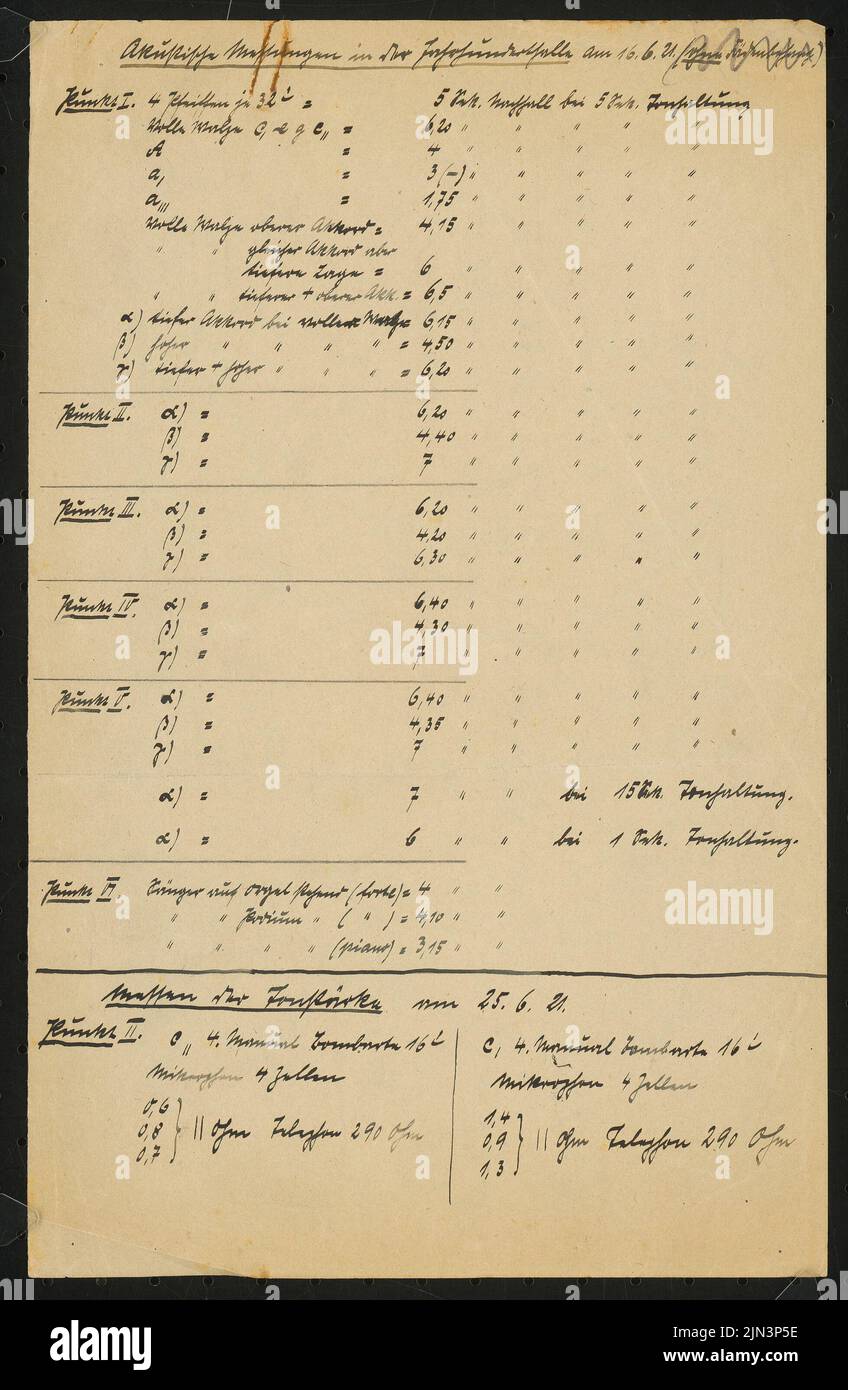 Akustische Messungen in der Jahrhunderthalle am 16.6.21. (ohne
Punkt I. 4 Pfeifen je 32' = 5 Sek. Nachhall bei 5 Sek. Tonhaltung
Volle Walze C, e g c,, = 6,20 " " " " "
A = 4 " " " " "
a, = 3 (-) " " " " "
a,,, = 1,75 " " " " "
Volle Walze oberer Akkord = 4,15 " " " " "
" " gleicher Akkord aber
tiefere Lage = 6 " " " " "
" " tieferer + oberer Akk. = 6,5 " " " " "
α) tiefer Akkord bei voller Walze = 6,15 " " " " "
β) hoher " " " " = 4,50 " " " " "
γ) tiefer + hoher " " " = 6,20 " " " " "
Punkt II. α) = 6,20 " " " " "
β) = 4,40 " " " " "
γ) = 7 " " " " "
Punkt III. α) = 6,20 " " " " "
β) = 4,20 " " " " "
γ) = 6,30 " " " " "
Punkt IV. α) = 6,40 " " " " "
β) = 4,30 " " " " "
γ) = 7 " " " " "
Punkt V. α) = 6,40 " " " " "
β) = 4,35 " " " " "
γ) = 7 " " " " "
α) = 7 " " bei 15 Sek. Tonhaltung.
α) = 6 " " bei 1 Sek. Tonhaltung.
Punkt VI. Sänger auf Orgel stehend (forte) = 4 " "
" " Podium " ( " ) = 4,10 " "
" " " " (piano) = 3,15 " "
Messen der Tonstärke am 25.6.21.
Punkt II. c,, 4. Manual Bombarte 16'
Mikrophon 4 Zellen
0,6
0,8 } || Ohm Telephon 290 Ohm
0,7
c, 4. Manual Bombarte 16'
Mikrophon 4 Zellen
1,4
0,9 } || Ohm Telephon 290 Ohm
1,3
alamy
Image ID: 2JN3P5E
www.alamy.com